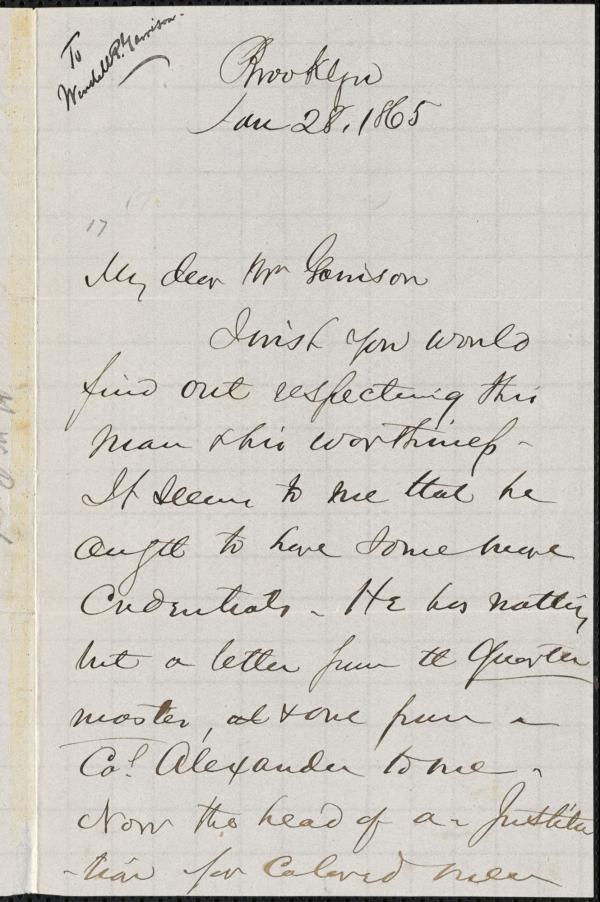 To
Wendell P. Garrison.
Brooklyn
Jan 28, 1865
17
My dear Mr Garrison
I wish you would
find out respecting this
man & his worthiness -
It seems to me that he
ought to have some more
Credentials - He has nothing
but a letter from the Quarter
master, & one from a
Col. Alexander to me -
Now the head of a Institu
-tion for Colored men